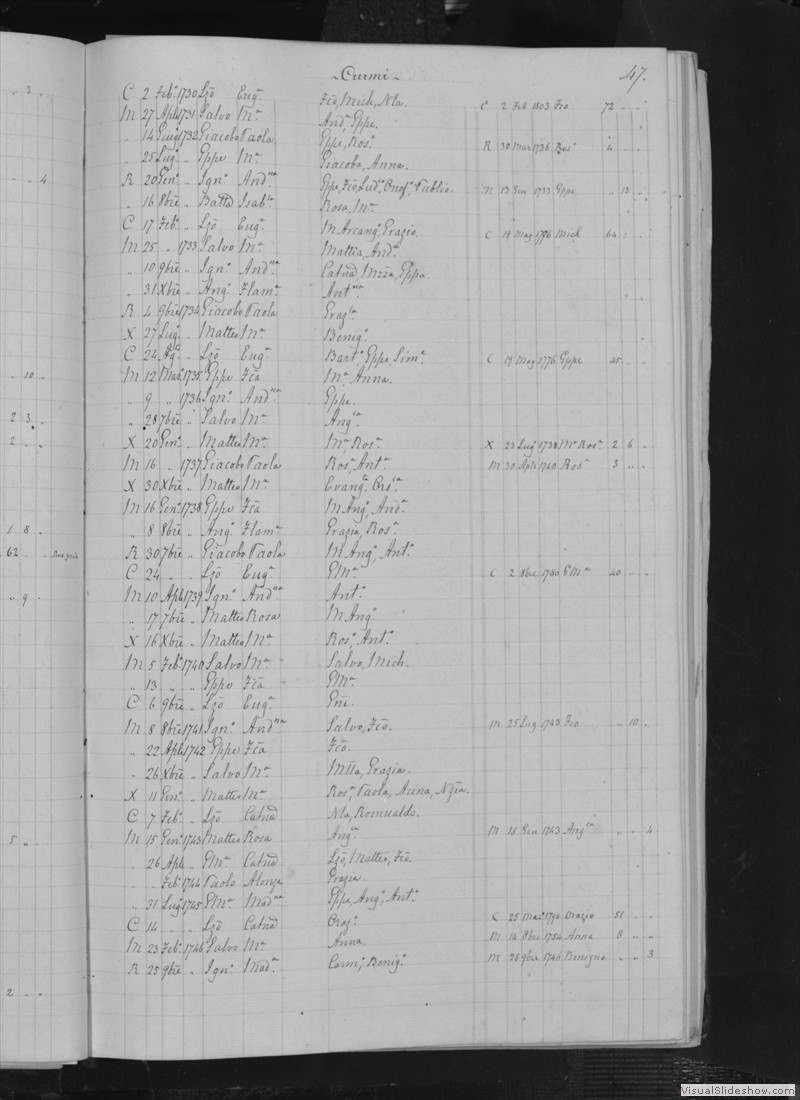 Curmi
47.
C 2 Febº 1730 Lzō Eugª Fcō, Mich, Nla. C 2 Feb 1803 Fco 72 " "
M 27 Aple 1731 Salvo Mª Andª, Gppe.
" 14 Giug 1732 Giacobo Paola Gppe, Rosª. R 30 Mar 1736 Rosª 4 " "
" 25 Lugº " Gppe Mª Giacoba, Anna.
R 20 Genº " Ignº Andna Gppe, Fcō, Ludº, Onofº, Publio. M 13 Gen 1733 Gppe " 13 "
" 16 8bre " Batta Isabla Rosa, Mª.
C 17 Febº " Lzō Eugª M Arcangª, Grazio. C 19 Mag 1796 Mich 64 " "
M 25 " 1733 Salvo Mª Mattia, Andª.
" 10 9bre " Ignº Andna Catñd, Mzza, Gppa.
" 31 Xbre " Angº Flamª Antna
R 4 9bre 1734 Giacobo Paola Grazla
X 27 Lugº " Matteo Mª Benigº.
C 24 Agto " Lzō Eugª Bartº, Gppe, Simª. C 19 Mag 1776 Gppe
M 12 Mar 1735 Gppe Fcā Mª Anna.
" 9 " 1736 Ignº Andna Gppe.
" 28 7bre " Salvo Mª Angca
X 20 Genº " Matteo Mª Mª, Rosª. X 23 Lug 1738 Mª Rosª 2 6 "
M 16 " 1737 Giacobo Paola Rosª, Antª. M 30 Aple 1740 Rosª 3 " "
X 30 Xbre " Matteo Mª Evangta
M 16 Genº 1738 Gppe Fcā M Angª, Andª.
" 8 8bre " Angº Flamª Grazia, Rosª.
R 30 7bre " Giacobo Paola M Angº, Antº.
C 24 " " Lzō Eugª EMª. C 2 8bre 1780 EMª 40 " "
M 10 Aple 1739 Ignº Andna Antº.
" 17 7bre " Matteo Rosa M Angº.
X 16 Xbre " Matteo Mª Rosª, Antª.
M 5 Febº 1740 Salvo Mª Salvo, Mich.
" 13 " " Gppe Fcā EMª.
C 6 9bre " Lzō Eugª
M 8 8bre 1741 Ignº Andna Salvo, Fcō. M 25 Lug 1743 Fco " 10 "
" 22 Aple 1742 Gppe Fcā Fcō.
" 26 Xbre " Salvo Mª Mlla, Grazia.
X 11 Genº " Matteo Mª Rosª, Paola, Anna, Nzia.
C 7 Febº " Lzō Catñd Nla, Romualdo.
M 15 Genº 1743 Matteo Rosa Angca M 16 Gen 1743 Angca " " 4
" 26 Aple " EMª Catñd Lzō, Matteo, Fcō.
" " Febº 1744 Paolo Alonza Grazia
" 31 Lugº 1745 EMª Madna Gppe, Angº, Antº.
C 14 " " Lzō Catñd Orazº. C 25 Mar 1794 Orazio 51 " "
M 23 Febº 1746 Salvo Mª Anna M 14 8bre 1754 Anna 8 " "
R 25 9bre " Ignº Madª. Carmº, Benigº. M 28 9bre 1746 Benigno " " 3
VisualSlideshow.com